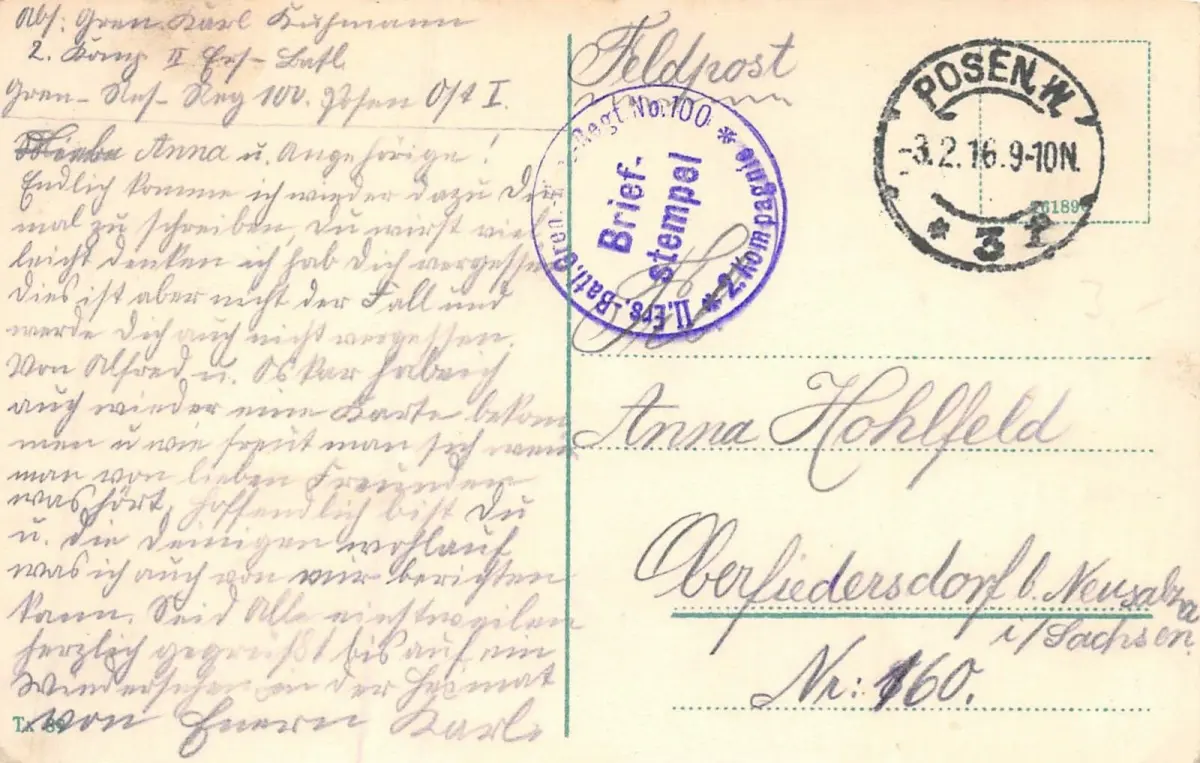 Abs: Gren. Karl Kuhmann
2. Komp II Ers-Batl.
Gren-Res-Reg 100. Posen O/1 I.
Anna u. Angehörige!
Endlich komme ich wieder dazu Dir
mal zu schreiben, Du warst viel
leicht denken ich hab Dich vergessen
dies ist aber nicht der Fall und
werde Dich auch nicht vergessen.
Von Alfred u. Oskar habe ich
auch wieder eine Karte bekom
men u wie freut man sich wenn
man von lieben Freunden
was hört. Hoffendlich bist Du
u. die Deinigen wohlauf
was ich auch von mir berichten
kann. Seid Alle einstweilen
herzlich gegrüßt bis auf ein
Wiedersehen in der Heimat
von Euern Karl.
Feldpost
II. Ers.-Batl. Gren.-Regt No. 100 * 2. Kompagnie *
Brief-
stempel
POSEN.W.
-3.2.16.9-10N.
* 3
Anna Hohlfeld
Oberfiedersdorf b. Neusalza
i/Sachsen.
Nr: 160.